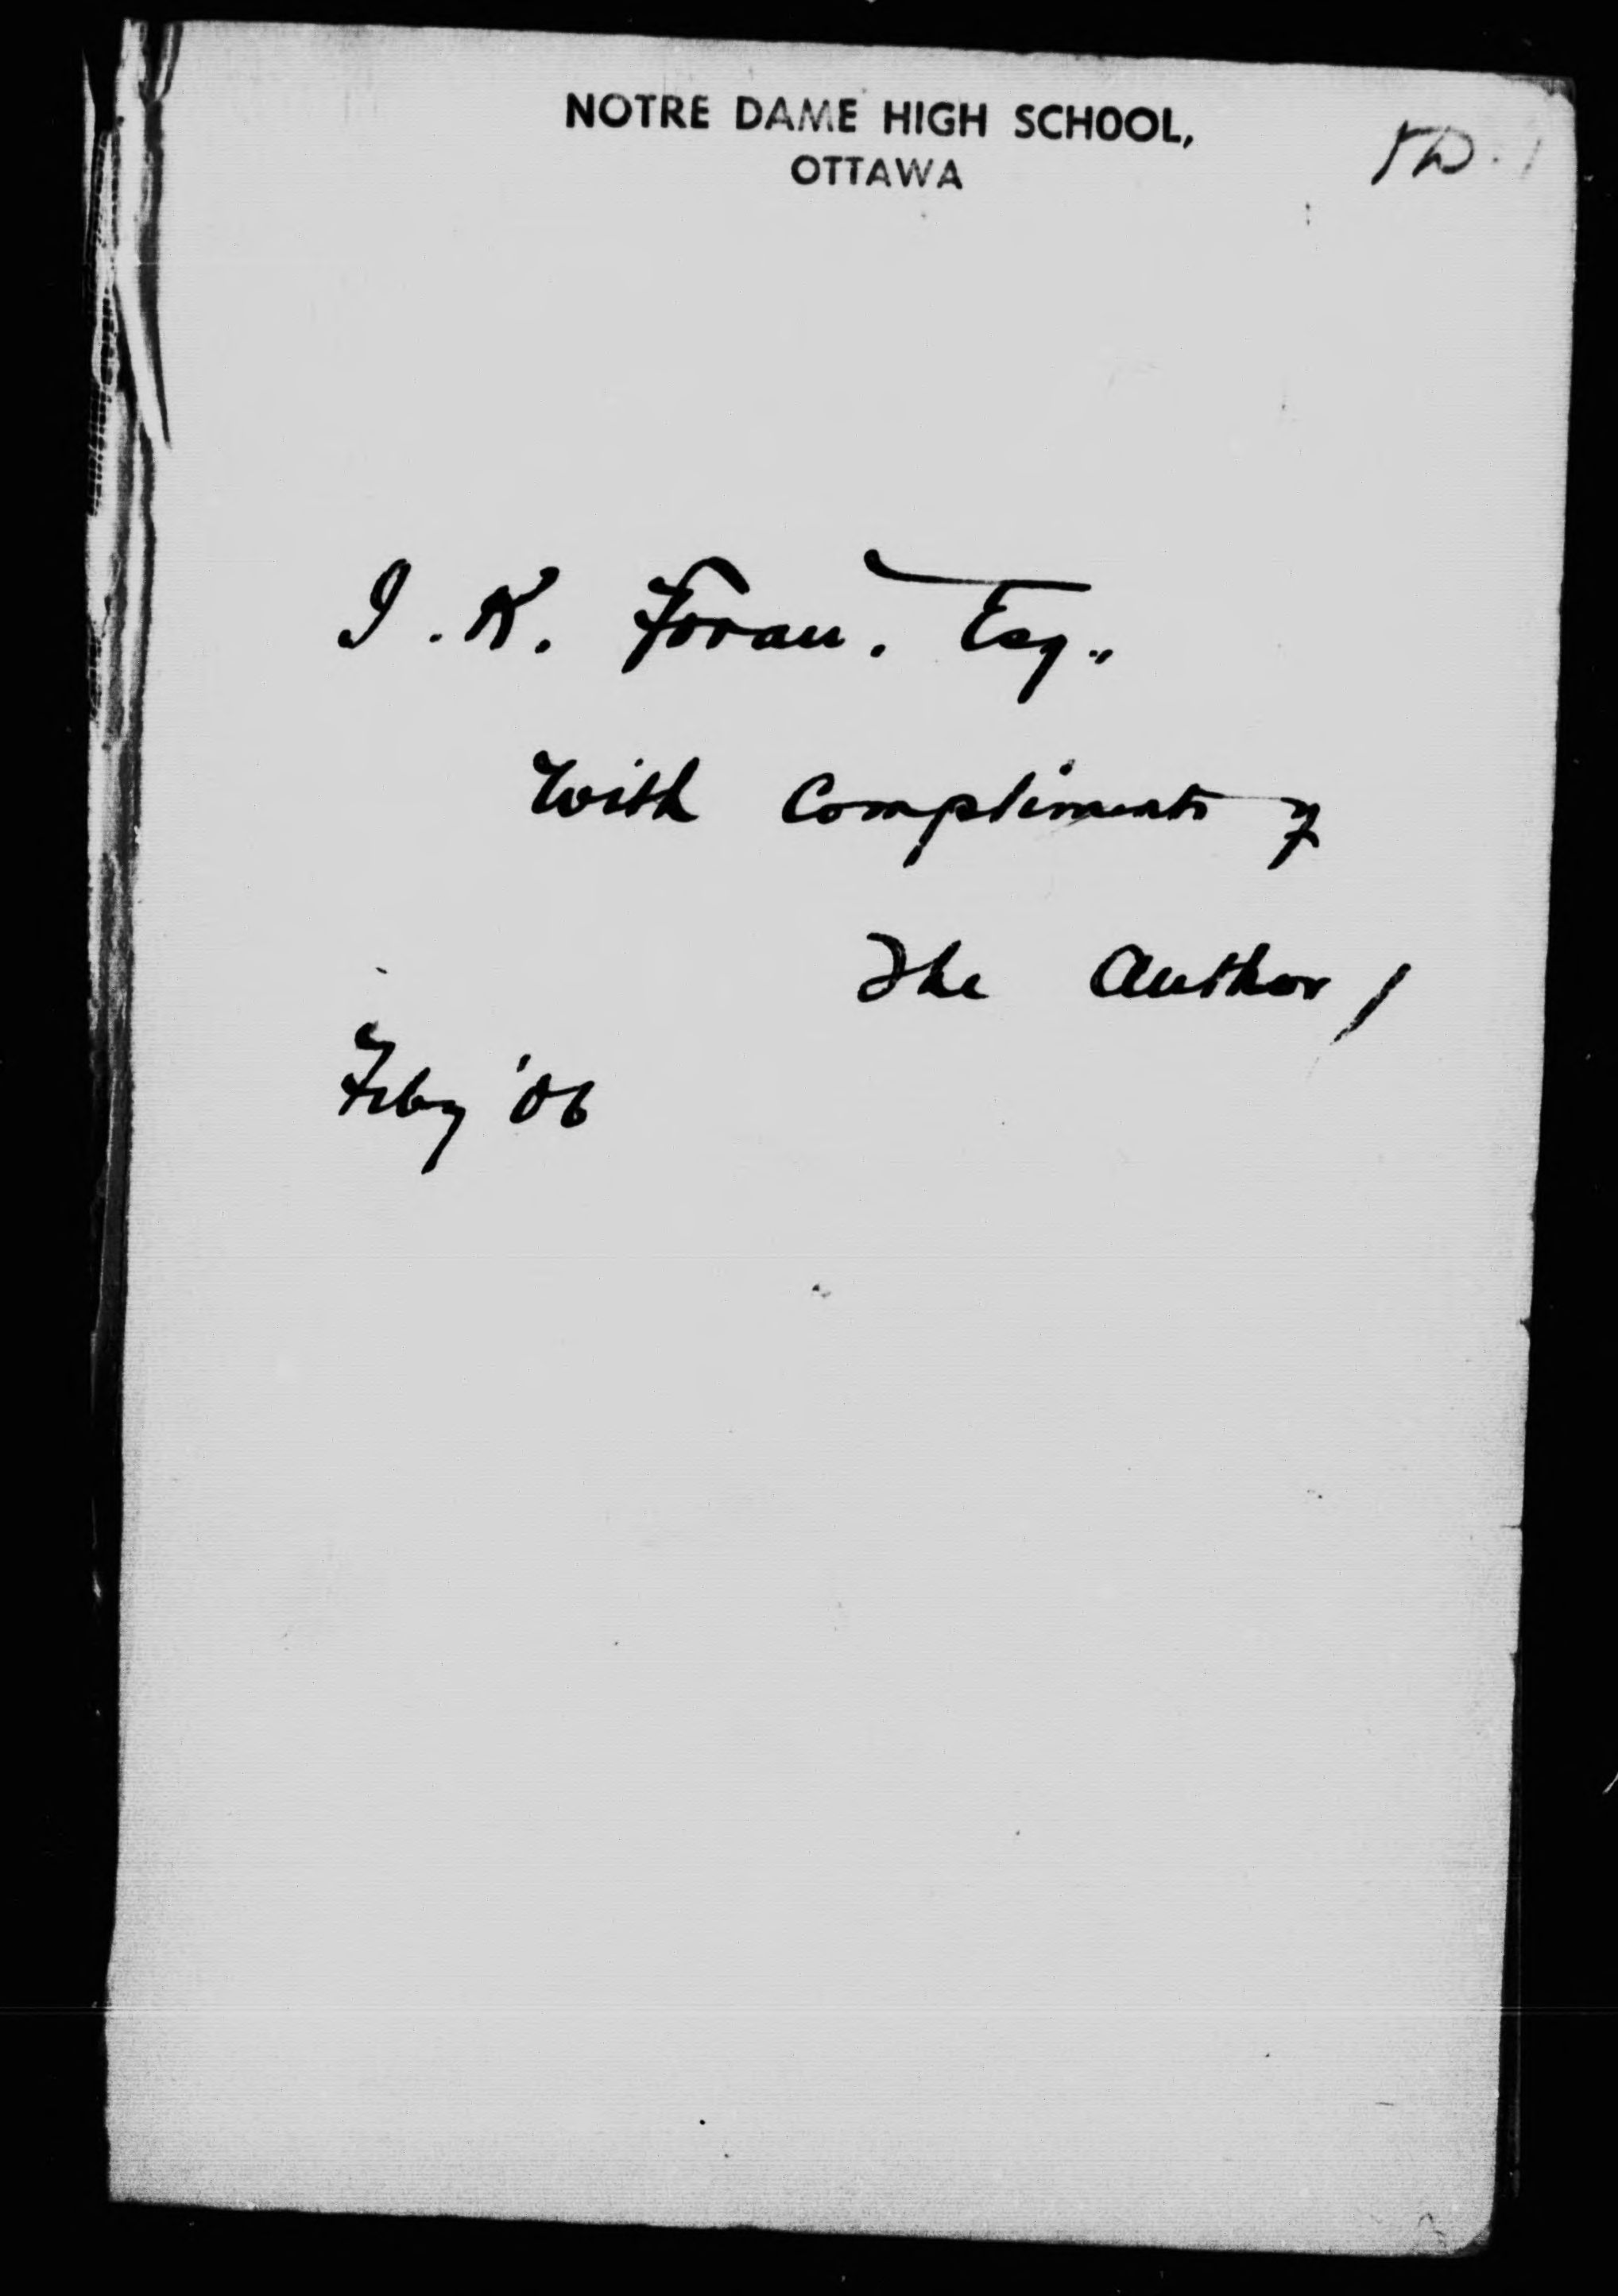 NOTRE DAME HIGH SCHOOL,
OTTAWA
J. K. Foran. Esq.,
With Compliments of
The Author/
Feby '06